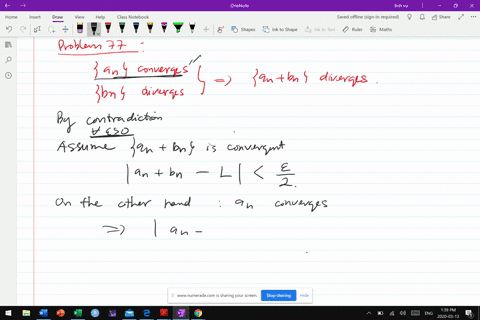 OneNote
File Home Insert Draw View Help Class Notebook
Saved offline (sign in required)
Shapes Ink to Shape Ink to Text Ruler Math
Problem 77 :
{an} converges
{bn} diverges } => {an + bn} diverges.
By contradiction
∀ ε>0
Assume {an + bn} is convergent
|an + bn - L| < ε/2.
On the other hand : an converges
=> | an -
www.numerade.com is sharing your screen. Stop sharing Hide
ENG
1:39 PM
2020-03-13